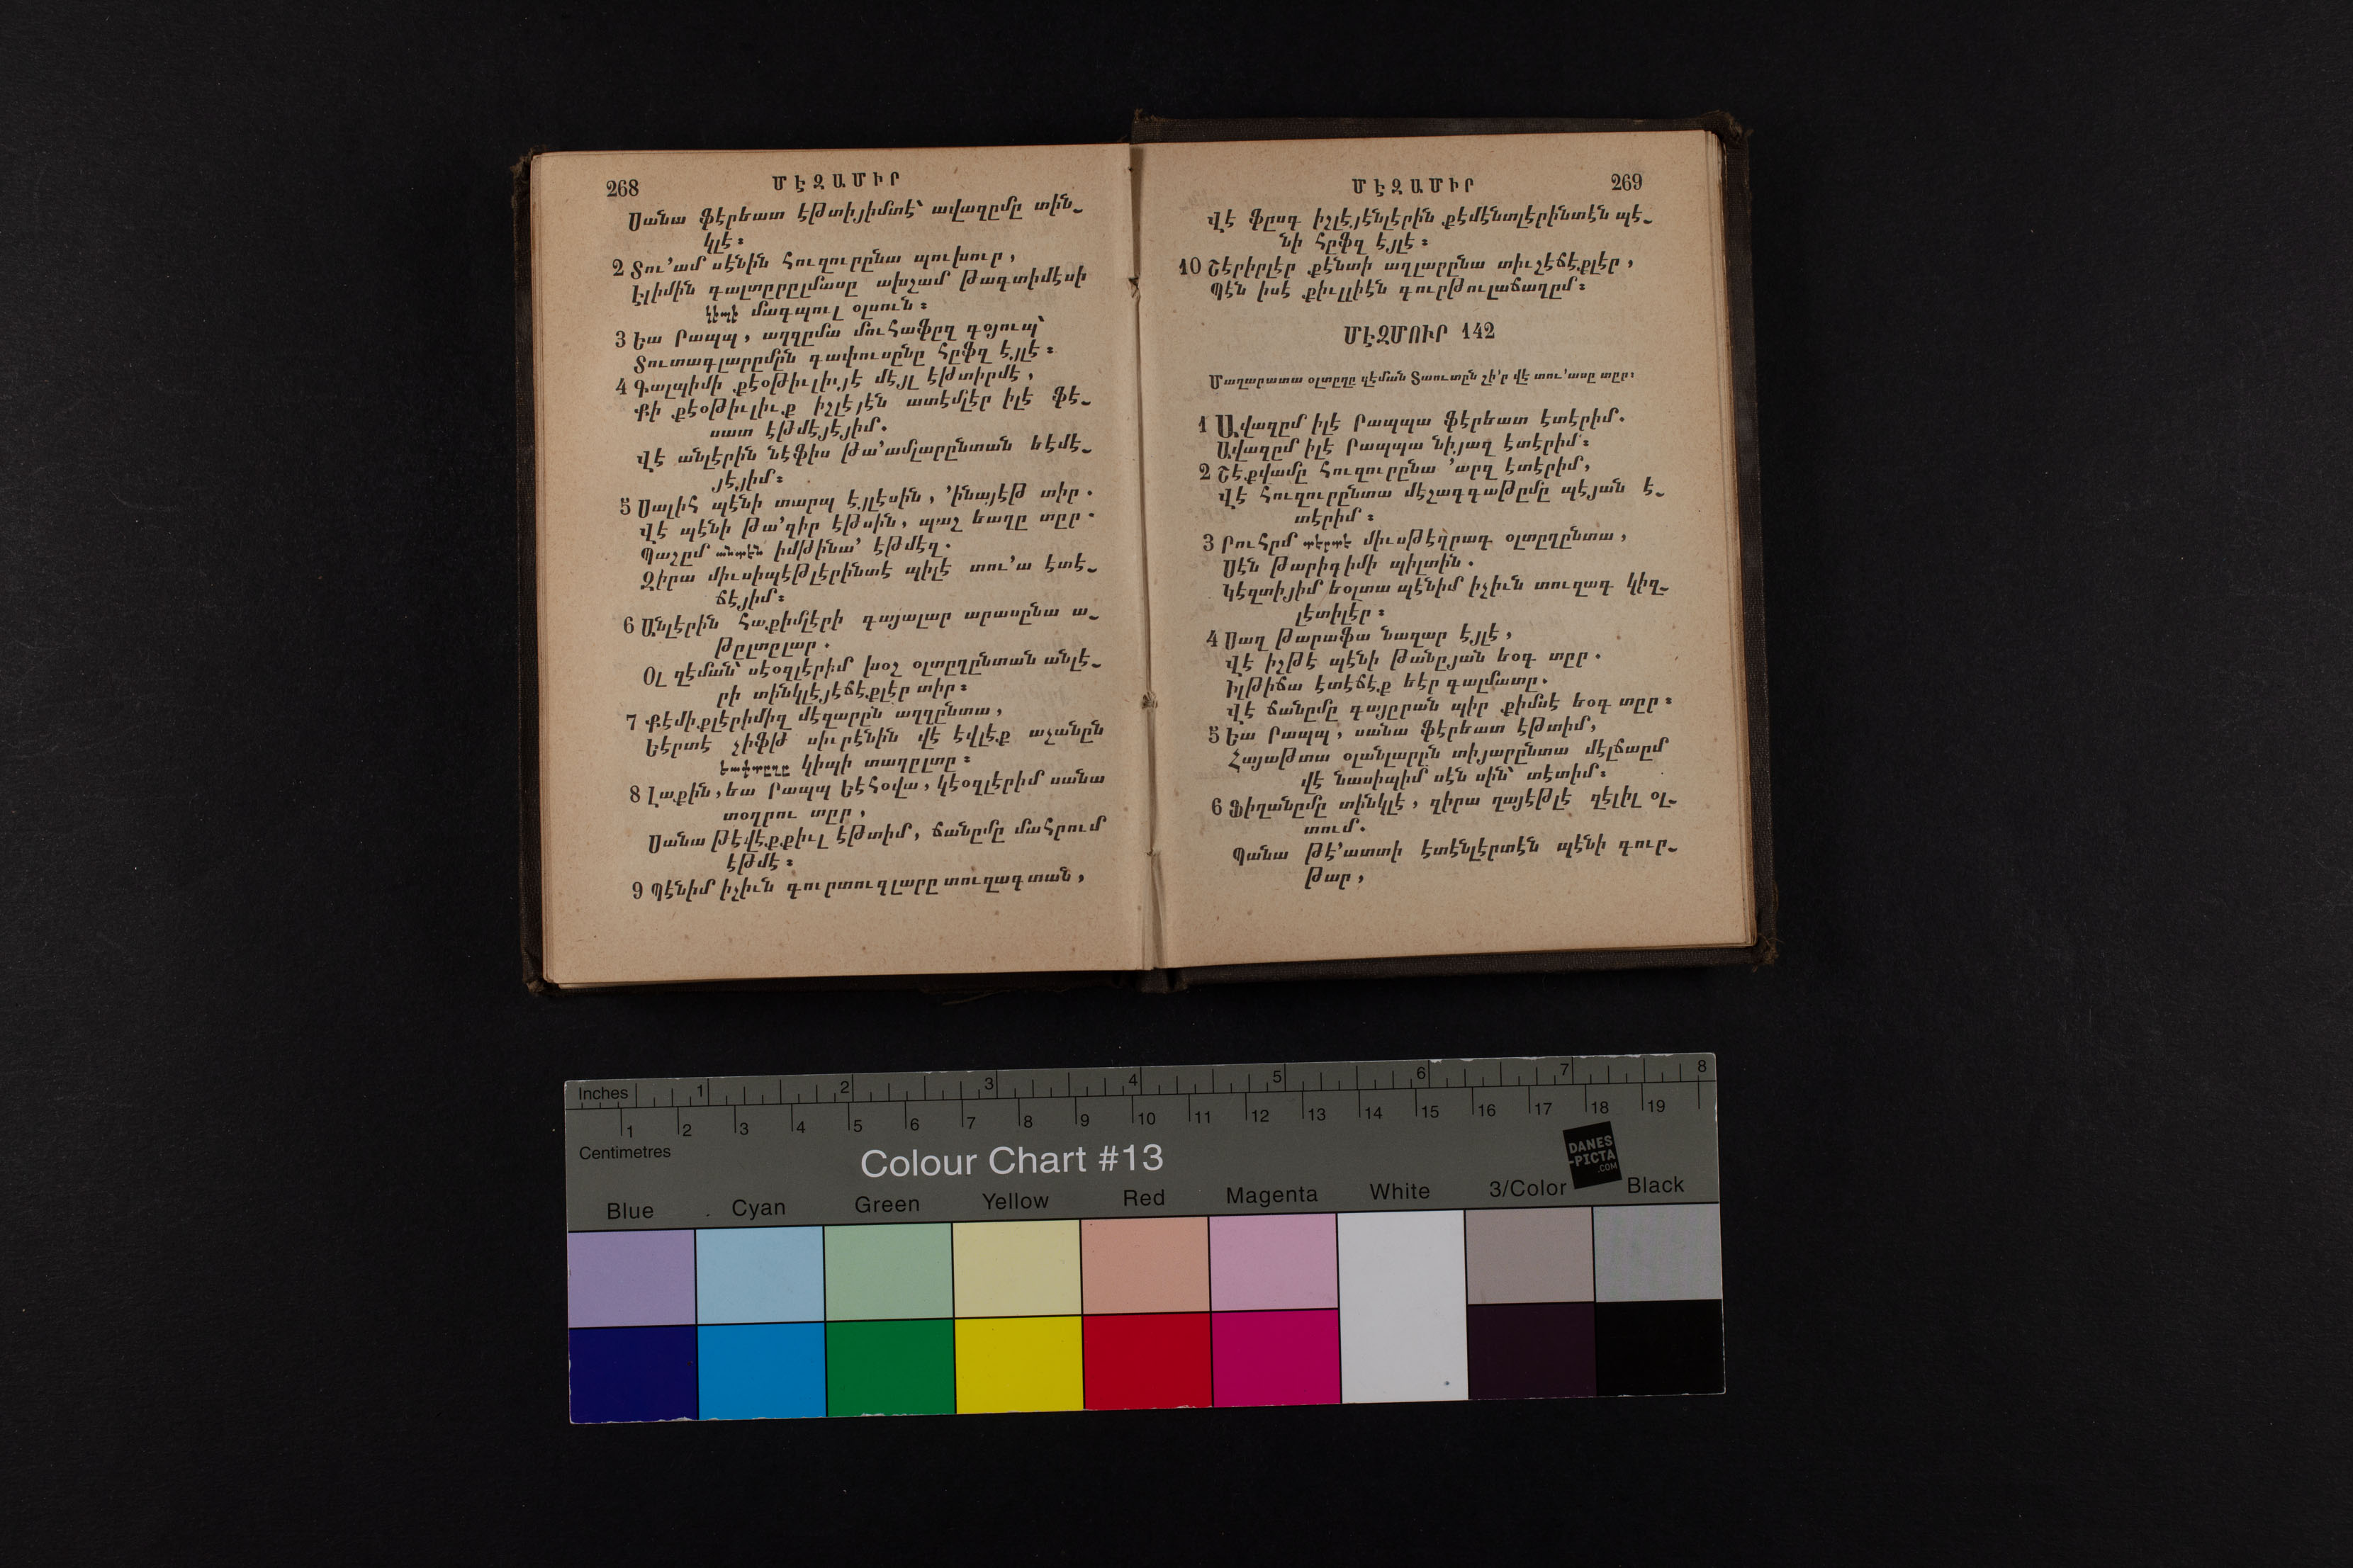 268 ՄԷԶԱՄԻՐ
Սանա ֆէրեատ էթտիյիմտէ՝ ավազըմը տին֊
կլէ։
2 Տու՚ամ սէնին հուզուրընա պուխուր,
Էլիմին գալտըրըլմասը ախշամ թագտիմէսի
կիպի մագպուլ օլսուն։
3 Եա Րապպ, աղզըմա մուհաֆըզ գօյուպ՝
Տուտագլարըմըն գափուսընը հըֆզ էյլէ։
4 Գալպիմի քէօթիւլիւյէ մէյլ էթտիրմէ,
Քի քէօթիւլիւք իշլէյէն ատէմլէր իլէ ֆէ֊
սատ էթմէյէյիմ.
Վէ անլէրին նէֆիս թա՚ամլարընտան եէմէ֊
յէյիմ։
5 Սալիհ պէնի տարպ էյլէսին, ՚ինայէթ տիր.
Վէ պէնի թա՚զիր էթսին, պաշ եաղը տըր.
Պաշըմ անտէն իմթինա՚ էթմէզ.
Զիրա միւսիպէթլէրինտէ պիլէ տու՚ա էտէ֊
ճէյիմ։
6 Անլէրին հաքիմլէրի գայալար արասընա ա֊
թըլտըլար.
Օլ զէման՝ սէօզլէրիմ խօշ օլտըղընտան անլէ֊
րի տինկլէյէճէքլէր տիր։
7 Քէմիքլէրիմիզ մէզարըն աղզընտա,
Եէրտէ չիֆթ սիւրէնին վէ էվլէք աչանըն
եափտըղը կիպի տաղըլտը։
8 Լաքին, եա Րապպ Եէհօվա, կէօզլէրիմ սանա
տօղրու տըր,
Սանա թէվէքքիւլ էթտիմ, ճանըմը մահրում
էթմէ։
9 Պէնիմ իչիւն գուրտուգլարը տուզագտան,
ՄԷԶԱՄԻՐ 269
Վէ ֆըսգ իշլէյէնլէրին քէմէնտլէրինտէն պէ֊
նի հըֆզ էյլէ։
10 Շէրիրլէր քէնտի աղլարընա տիւշէճէքլէր,
Պէն իսէ քիւլլիէն գուրթուլաճաղըմ։
ՄԷԶՄՈՒՐ 142
Մաղարատա օլտըղը զէման Տաուտըն շի՚ր վէ տու՚ասը տըր։
1 Ավազըմ իլէ Րապպա ֆէրեատ էտէրիմ.
Ավազըմ իլէ Րապպա նիյազ էտէրիմ։
2 Շէքվամը հուզուրընա ՚արզ էտէրիմ,
Վէ հուզուրընտա մէշագգաթըմը պէյան է֊
տէրիմ։
3 Րուհըմ պէրպէ միւսթէղրագ օլտըղընտա,
Սէն թարիգիմի պիլտին.
Կէզտիյիմ եօլտա պէնիմ իչիւն տուզագ կիզ֊
լէտիլէր։
4 Սաղ թարաֆա նազար էյլէ,
Վէ իշթէ պէնի թանըյան եօգ տըր.
Իլթիճա էտէճէք եէր գալմատը.
Վէ ճանըմը գայըրան պիր քիմսէ եօգ տըր։
5 Եա Րապպ, սանա ֆէրեատ էթտիմ,
Հայաթտա օլանլարըն տիյարընտա մէլճաըմ
վէ նասիպիմ սէն սին՝ տէտիմ։
6 Ֆիղանըմը տինկլէ, զիրա ղայէթլէ զէլիլ օլ֊
տում.
Պանա թէ՚ատտի էտէնլէրտէն պէնի գուր֊
թար,
Inches 1 2 3 4 5 6 7 8
1 2 3 4 5 6 7 8 9 10 11 12 13 14 15 16 17 18 19
Centimetres
Colour Chart #13
DANES
-PICTA
.COM
Blue Cyan Green Yellow Red Magenta White 3/Color Black